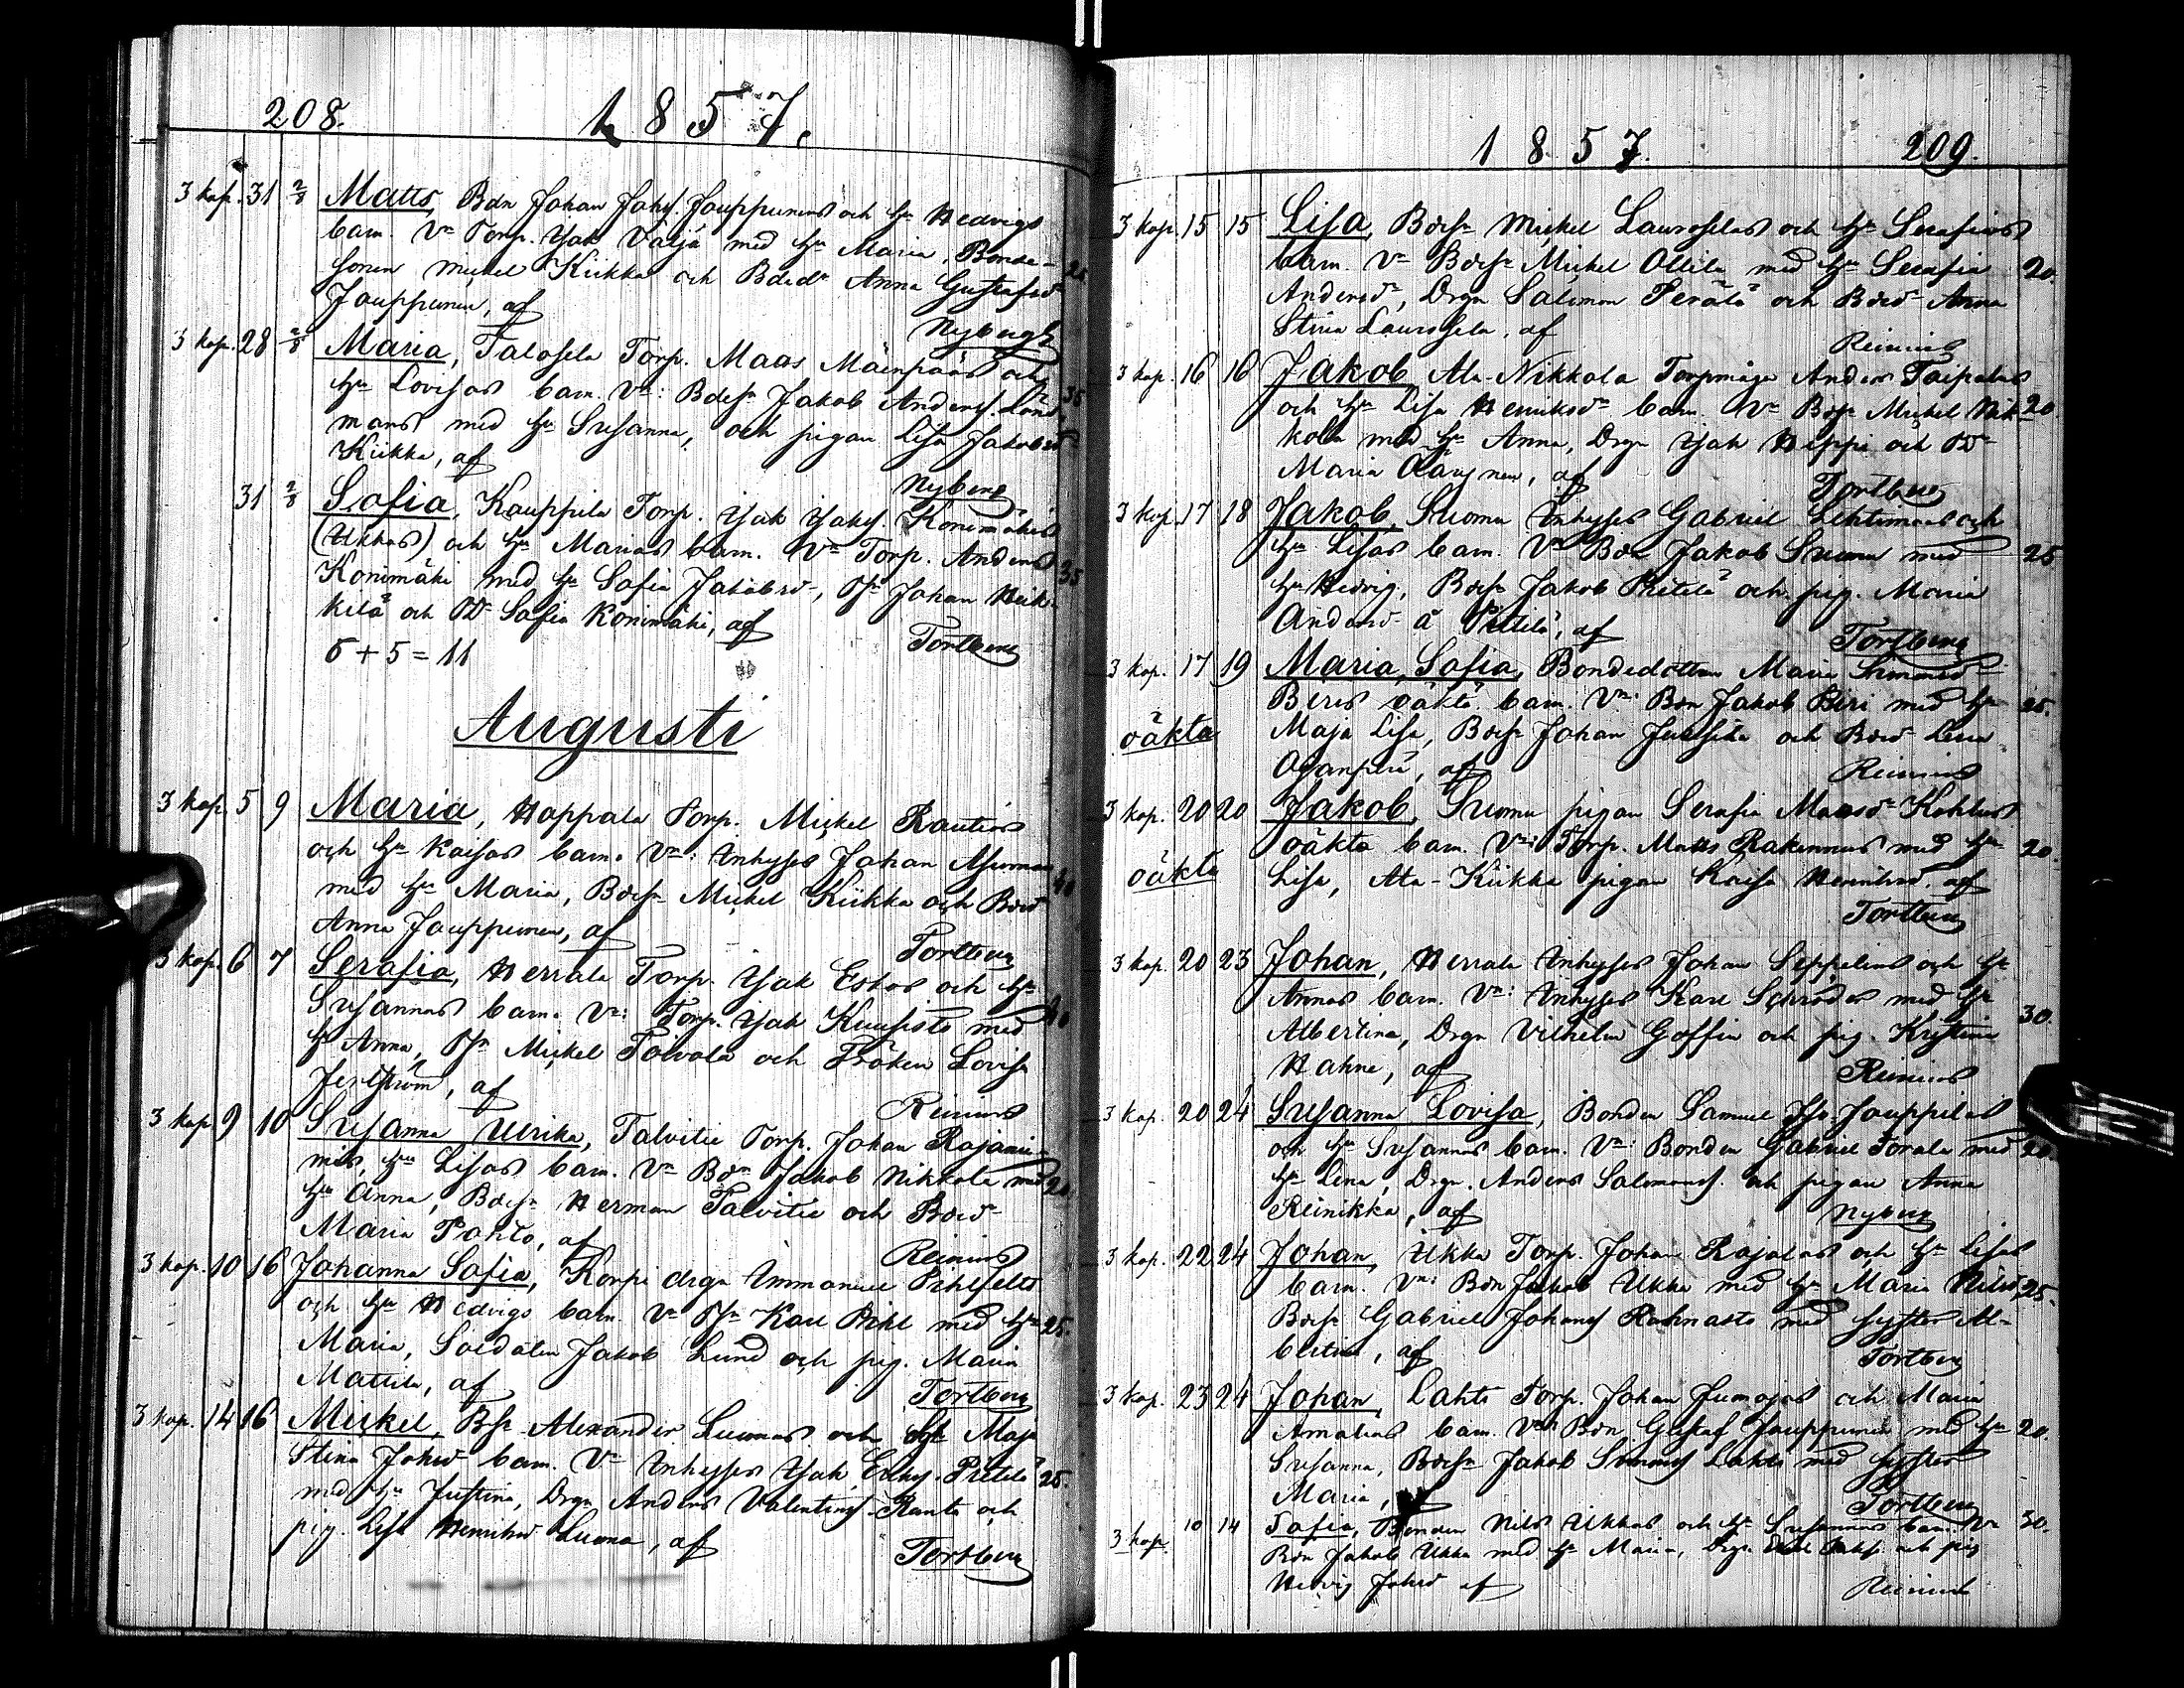 208. 1857.
3 kap. 31 2/8 Matts, Bdn Johan Johs. Jouppinens och H. Hedvigs
barn. Vn Torp. Isak Välja med H. Maria, Bonde-
sonen Mickel Kiikka och Bdedr Anna Gustafsdr 25
Jouppinen, af
Nybergh
3 kap. 28 2/8 Maria, Talosela Torp. Matts Mäenpääs och
Hu Lovisas barn. Vn: Bdesn Jakob Anderss. Lond 35
mans med Hu Susanna, och pigan Lisa Jakobsdr
Kiikka, af
Nyberg
31 2/8 Sofia, Kauppila Torp. Isak Isaks. Konimäkis
(Ukkas) och Hu Marias barn. Vn Torp. Anders 35
Konimäki med Hu Sofia Jakobsd., Johan Heik-
kilä och Sofia Konimäki, af
6 + 5 = 11 Tortberg
Augusti
3 kap. 5 9 Maria, Happala Torp. Mickel Rautios
och Hu Kaisas barn. Vn: Inhyses Johan 40
med Hu Maria, Bdesn Mickel Kiikka och Bdrd
Anna Jouppinen, af
Tortberg
3 kap. 6 7 Serafia, Herrala Torp. Isak Eskos och Hu
Susannas barn. Vn: Torp. Isak Kuusisto med 40
H Anna, Mickel Toivola och Fröken Lovisa
Jerlström, af
Reinius
3 kap. 9 10 Susanna Ulrika, Talvitie Torp. Johan Rajanie-
mis, Hu Lisas barn. Vn Bdn Jakob Nikkola med 20
Hu Anna, Bdesn Herman Talvitie och Bdrd
Maria Pohto, af
Reinius
3 kap. 10 16 Johanna Sofia, Korpi drgn Immanuel Pihlfelts
och Hu Hedvigs barn. Vn Karl Pihl med Hu 25.
Maria, Soldaten Jakob Lund och pig. Maria
Mattila, af
Tortberg
3 kap. 14 16 Mickel, Bsn Alexander Luomas och Hu Maja
Stina Johsd barn. Vn Inhyses Isak Pietilä 25.
med Hu Justina, Drgn Anders Valentins Ranta och
pig. Lisa Henriksd Luoma, af
Tortberg
1857. 209.
3 kap. 15 15 Lisa, Bdesn Mickel Lauroselas och Hu Serafias
barn. Vn Bdesn Mickel Ollila med Hu Serafia 20.
Andersdr, Drgn Salomon Perälä och Bdrd Anna
Stina Laurosela, af
Reinius
3 kap. 16 16 Jakob, Ala-Nikkola Torpmåg Anders Taipalus
och Hu Lisa Henriksdr barn. Vn Bdsn Mickel Nik- 20
kola med Hu Anna, Drgn Isak Heppi och
Maria, af
Tortberg
3 kap. 17 18 Jakob, Suoma Inhyses Gabriel Lehtimäs och
Hu Lisas barn. Vn Bdn Jakob Suoma med 25
Hu Hedvig, Bdesn Jakob Pietilä och pig. Maria
Andersd. å Pietilä, af
Tortberg
3 kap. 17 19 Maria Sofia, Bondedottren Maria Simonsd
Beris oäkta barn. Vn: Bdn Jakob Piiri med Hu 25.
oäkta Maja Lisa, Bdesn Johan Jussila och Bdrd Lisa
af
Reinius
3 kap. 20 20 Jakob, Suoma pigan Serafia Mattsdr Kohlus
oäkta barn. Vn: Torp. Matts Rakennus med Hu 20.
oäkta Lisa, Ala-Kiikka pigan Kaisa Henriksd. af
Tortberg
3 kap. 20 23 Johan, Herrala Inhyses Johan Seppelins och Hu
Annas barn. Vn: Inhyses Karl Schröder med Hu
Albertina, Drgn Vilhelm Goffin och pig. Kristina 30.
Hahne, af
Reinius
3 kap. 20 24 Susanna Lovisa, Bonden Samuel Jouppilas
och Hu Susannas barn. Vn: Bonden Gabriel Torala med 20
Hu Lena, Drgn. Anders Salomons. och pigan Anna
Reinikka, af Nyberg
3 kap. 22 24 Johan, Ukka Torp. Johan Rajalas och Hu Lisas
barn. Vn: Bdn Jakob Ukka med Hu Maria Nilsd, 25.
Bdsn Gabriel Johans Rahnasto med syster Al-
bertina, af Tortberg
3 kap. 23 24 Johan, Lahti Torp. Johan Jumojas och Maria
Amalias barn. Vn Bdn Gustaf Jouppinen med Hu 20.
Susanna, Bdesn Jakob Simons Lahti med syster
Maria, af Tortberg
3 kap. 10 14 Sofia, Bonden Nils Ukkas och Hu Susannas barn. Vn 30.
Bdn Jakob Ukka med Hu Maria, Drgn och pig
Hedvig Johsd af Reinius